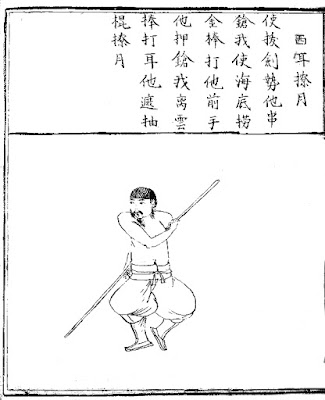 西撩月
使拔劍勢他串
鎗我使海底捞
金棒打他前手
他押鎗我离雲
捧打耳他遮抽
棍撩月